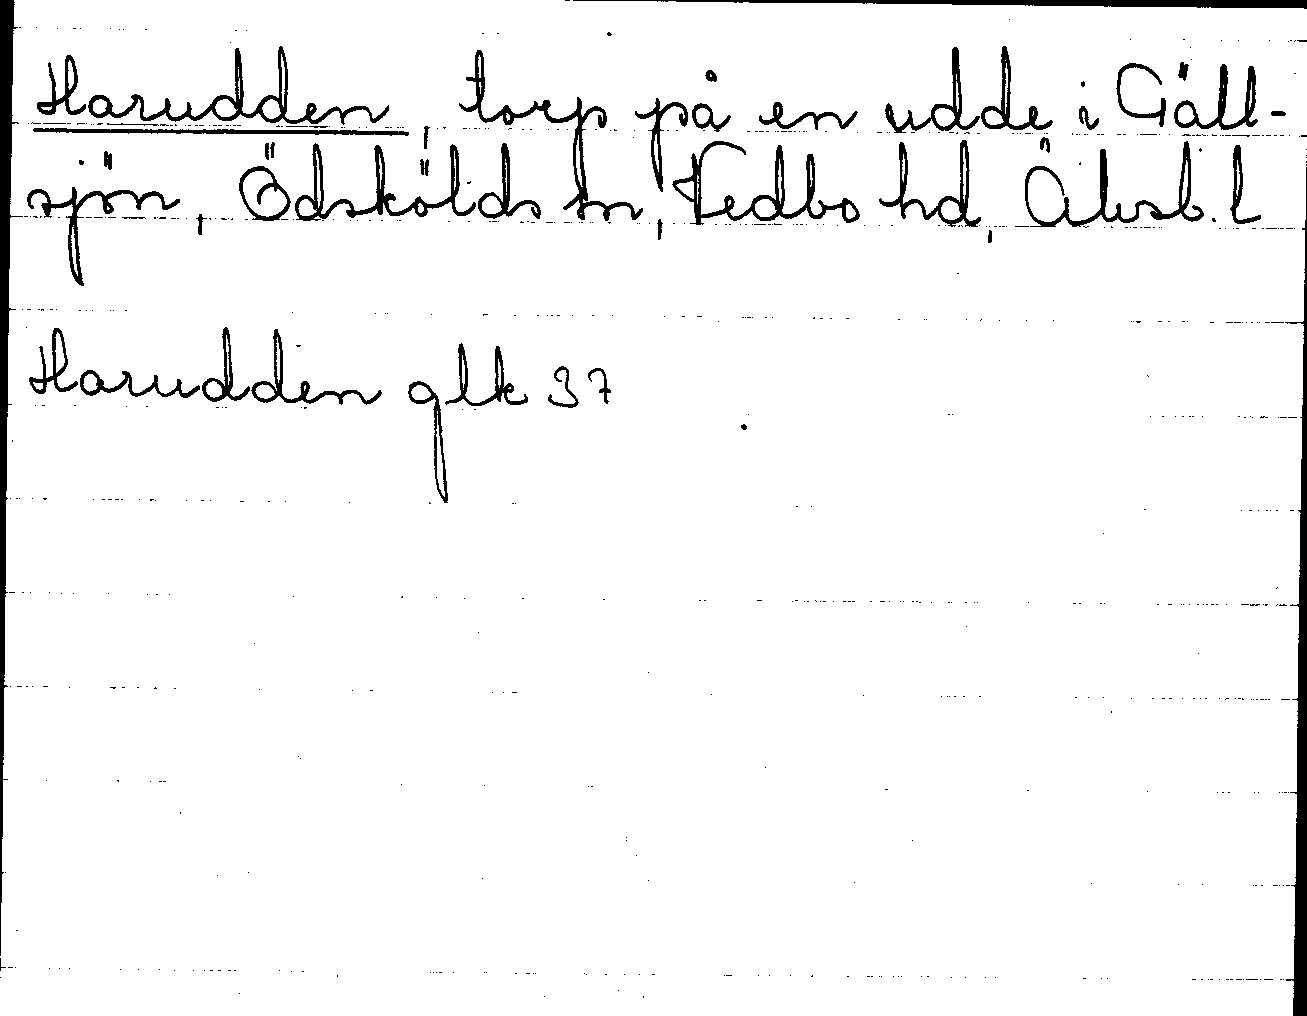 Harudden, torp på en udde i Gäll-
sjön, Ödskölds sn, Vedbo hd, Älvsb. l
Harudden glk 37